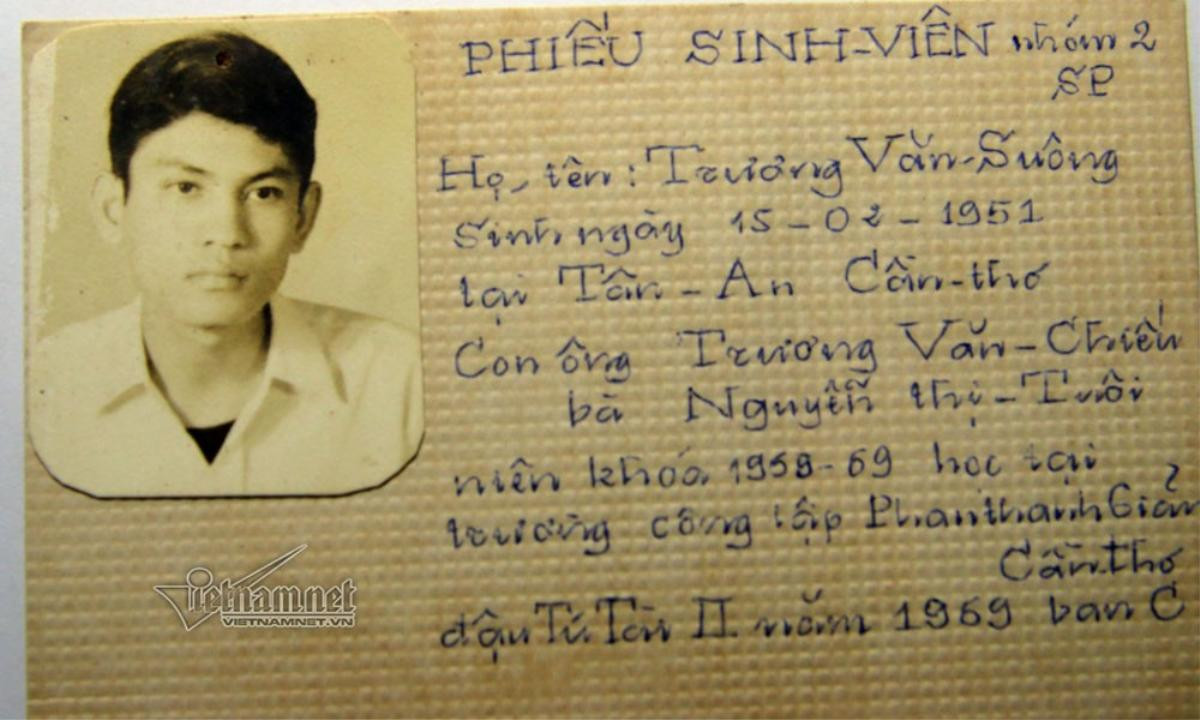 PHIẾU SINH-VIÊN nhóm 2
SP
Họ, tên: Trương Văn-Suông
Sinh ngày 15-02-1951
tại Tân-An Cần-thơ
Con ông Trương Văn-Chiếu
bà Nguyễn thị-Tưôi
niên khóa 1968-69 học tại
trường công lập Phanthanh Giản
Cần-thơ
đậu Tú Tài II năm 1969 ban C
Vietnamnet
VIETNAMNET.VN